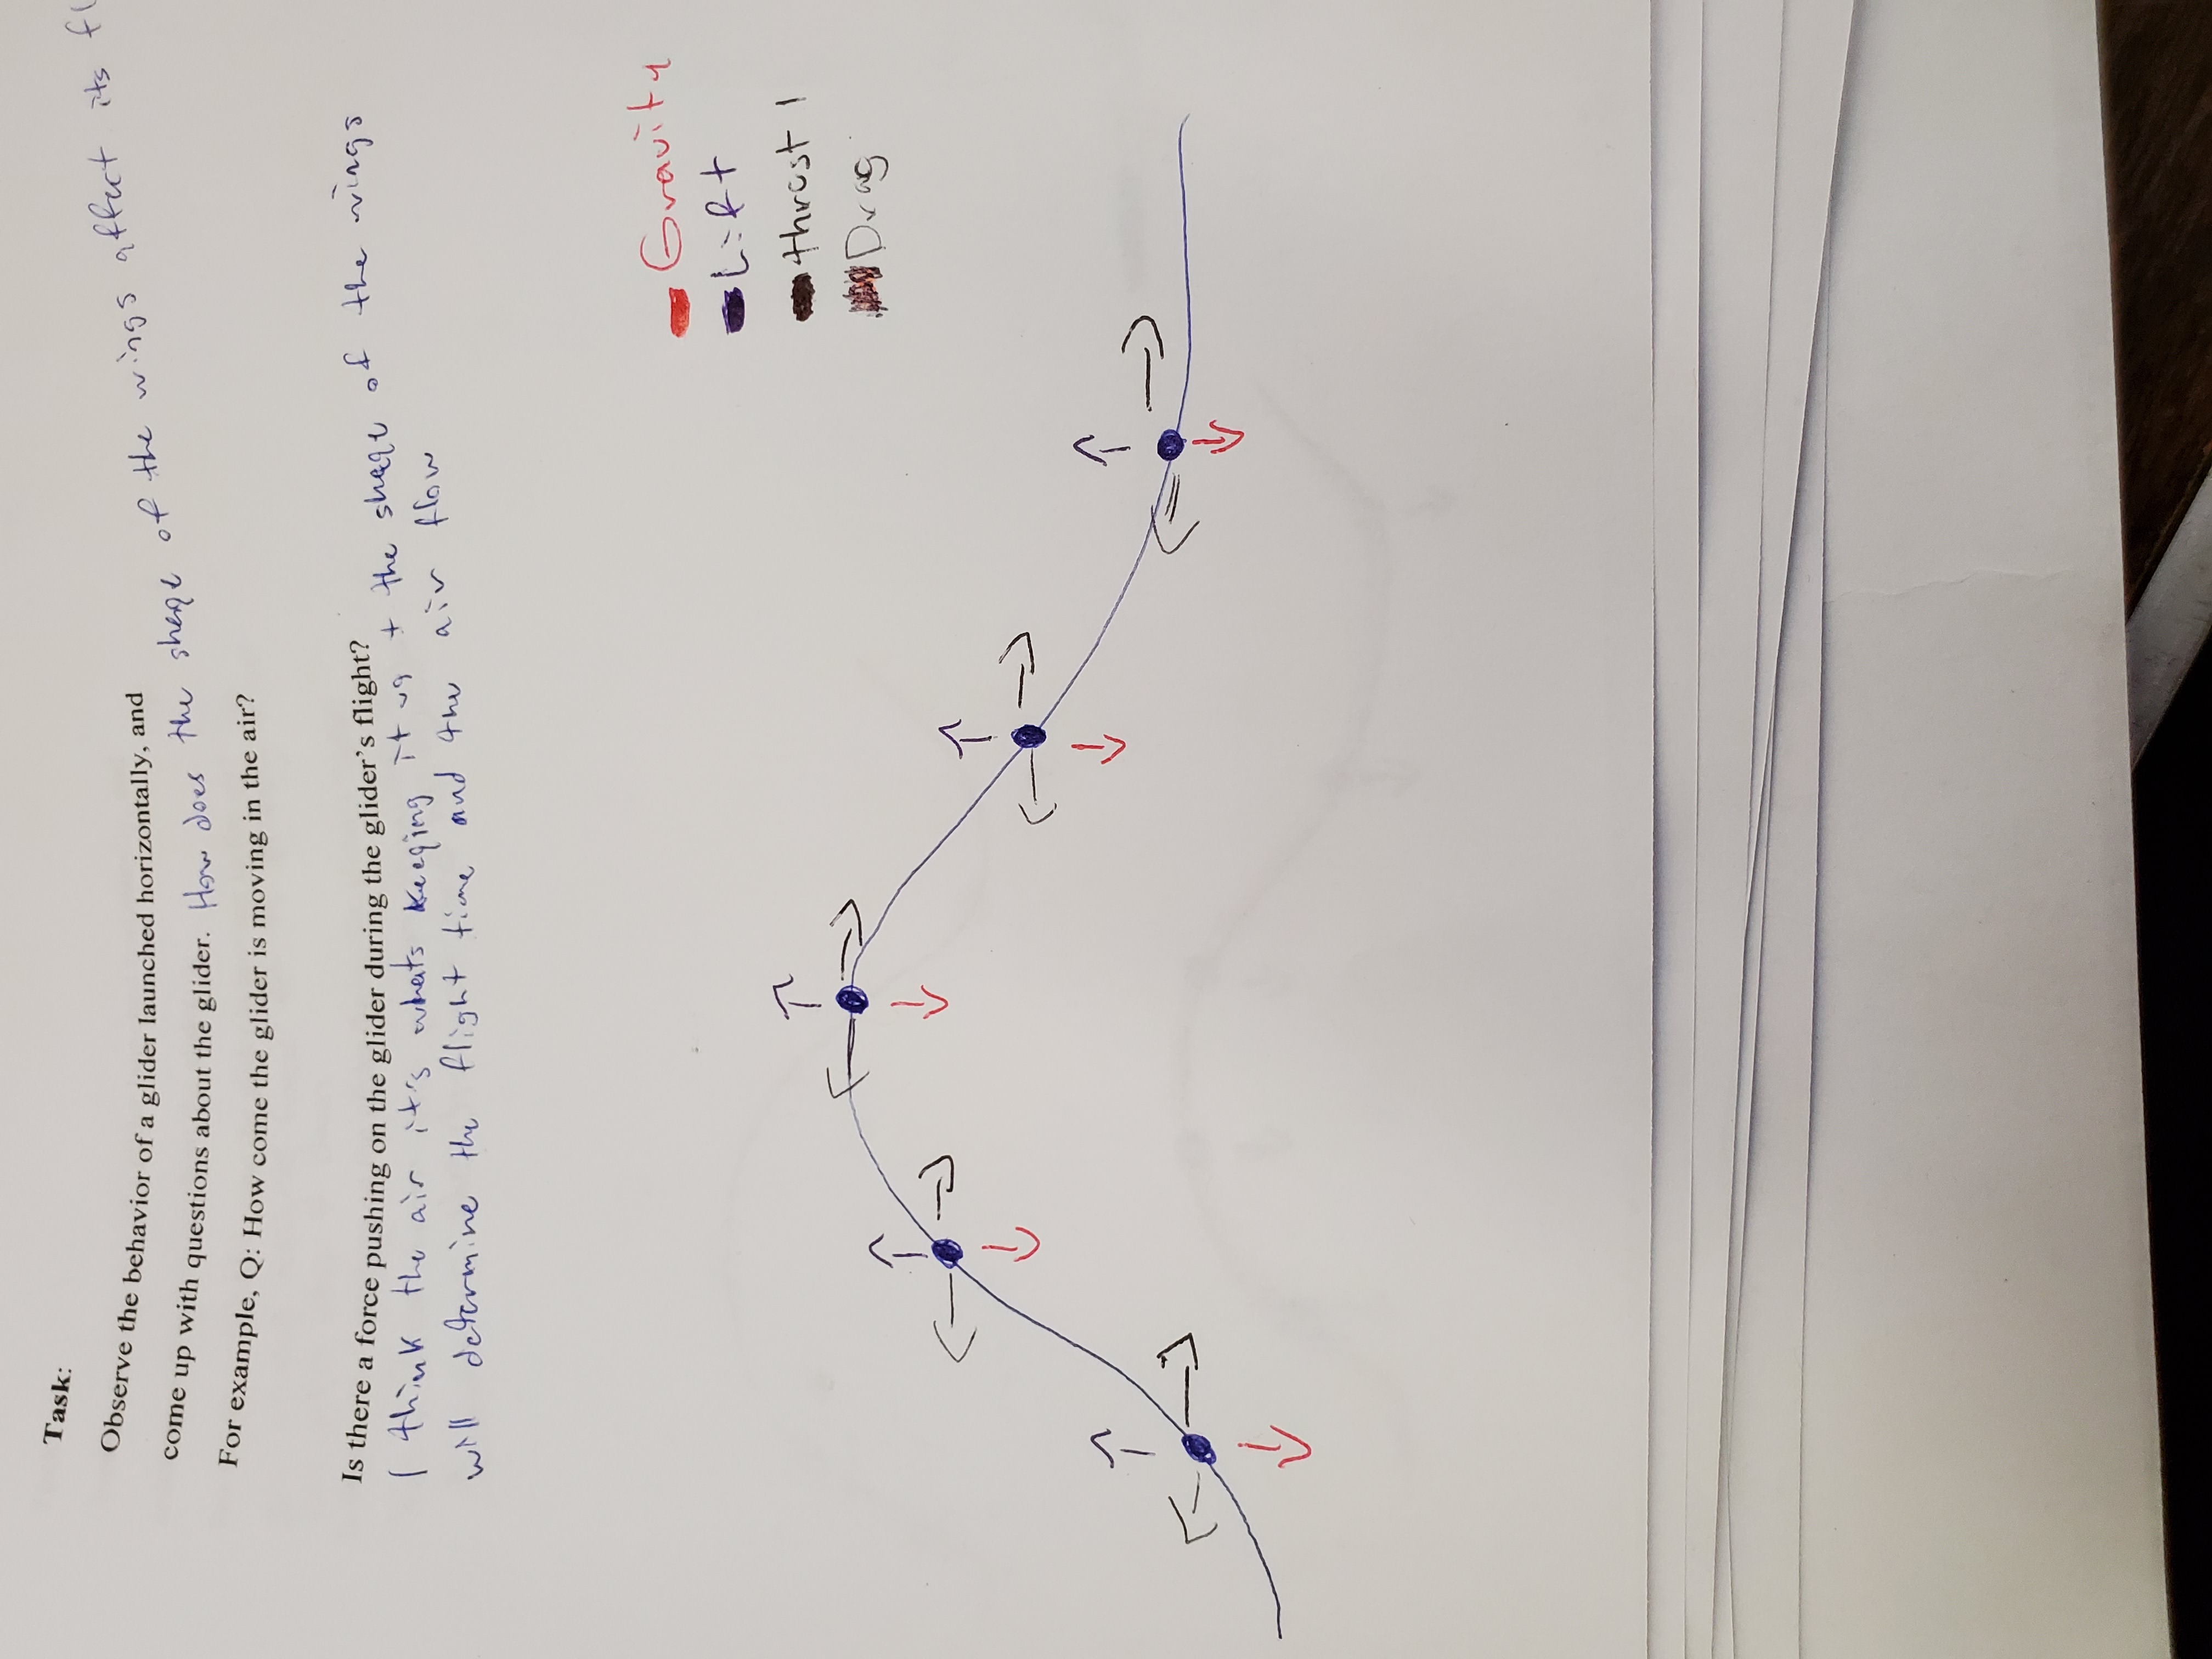 Task:
Observe the behavior of a glider launched horizontally, and
come up with questions about the glider. How does the shape of the wings affect its fl
For example, Q: How come the glider is moving in the air?
Is there a force pushing on the glider during the glider's flight?
I think the air it's whats keeping it up + the shape of the wings
will determine the flight time and the air flow
Gravity
Lift
thrust 1
Drag